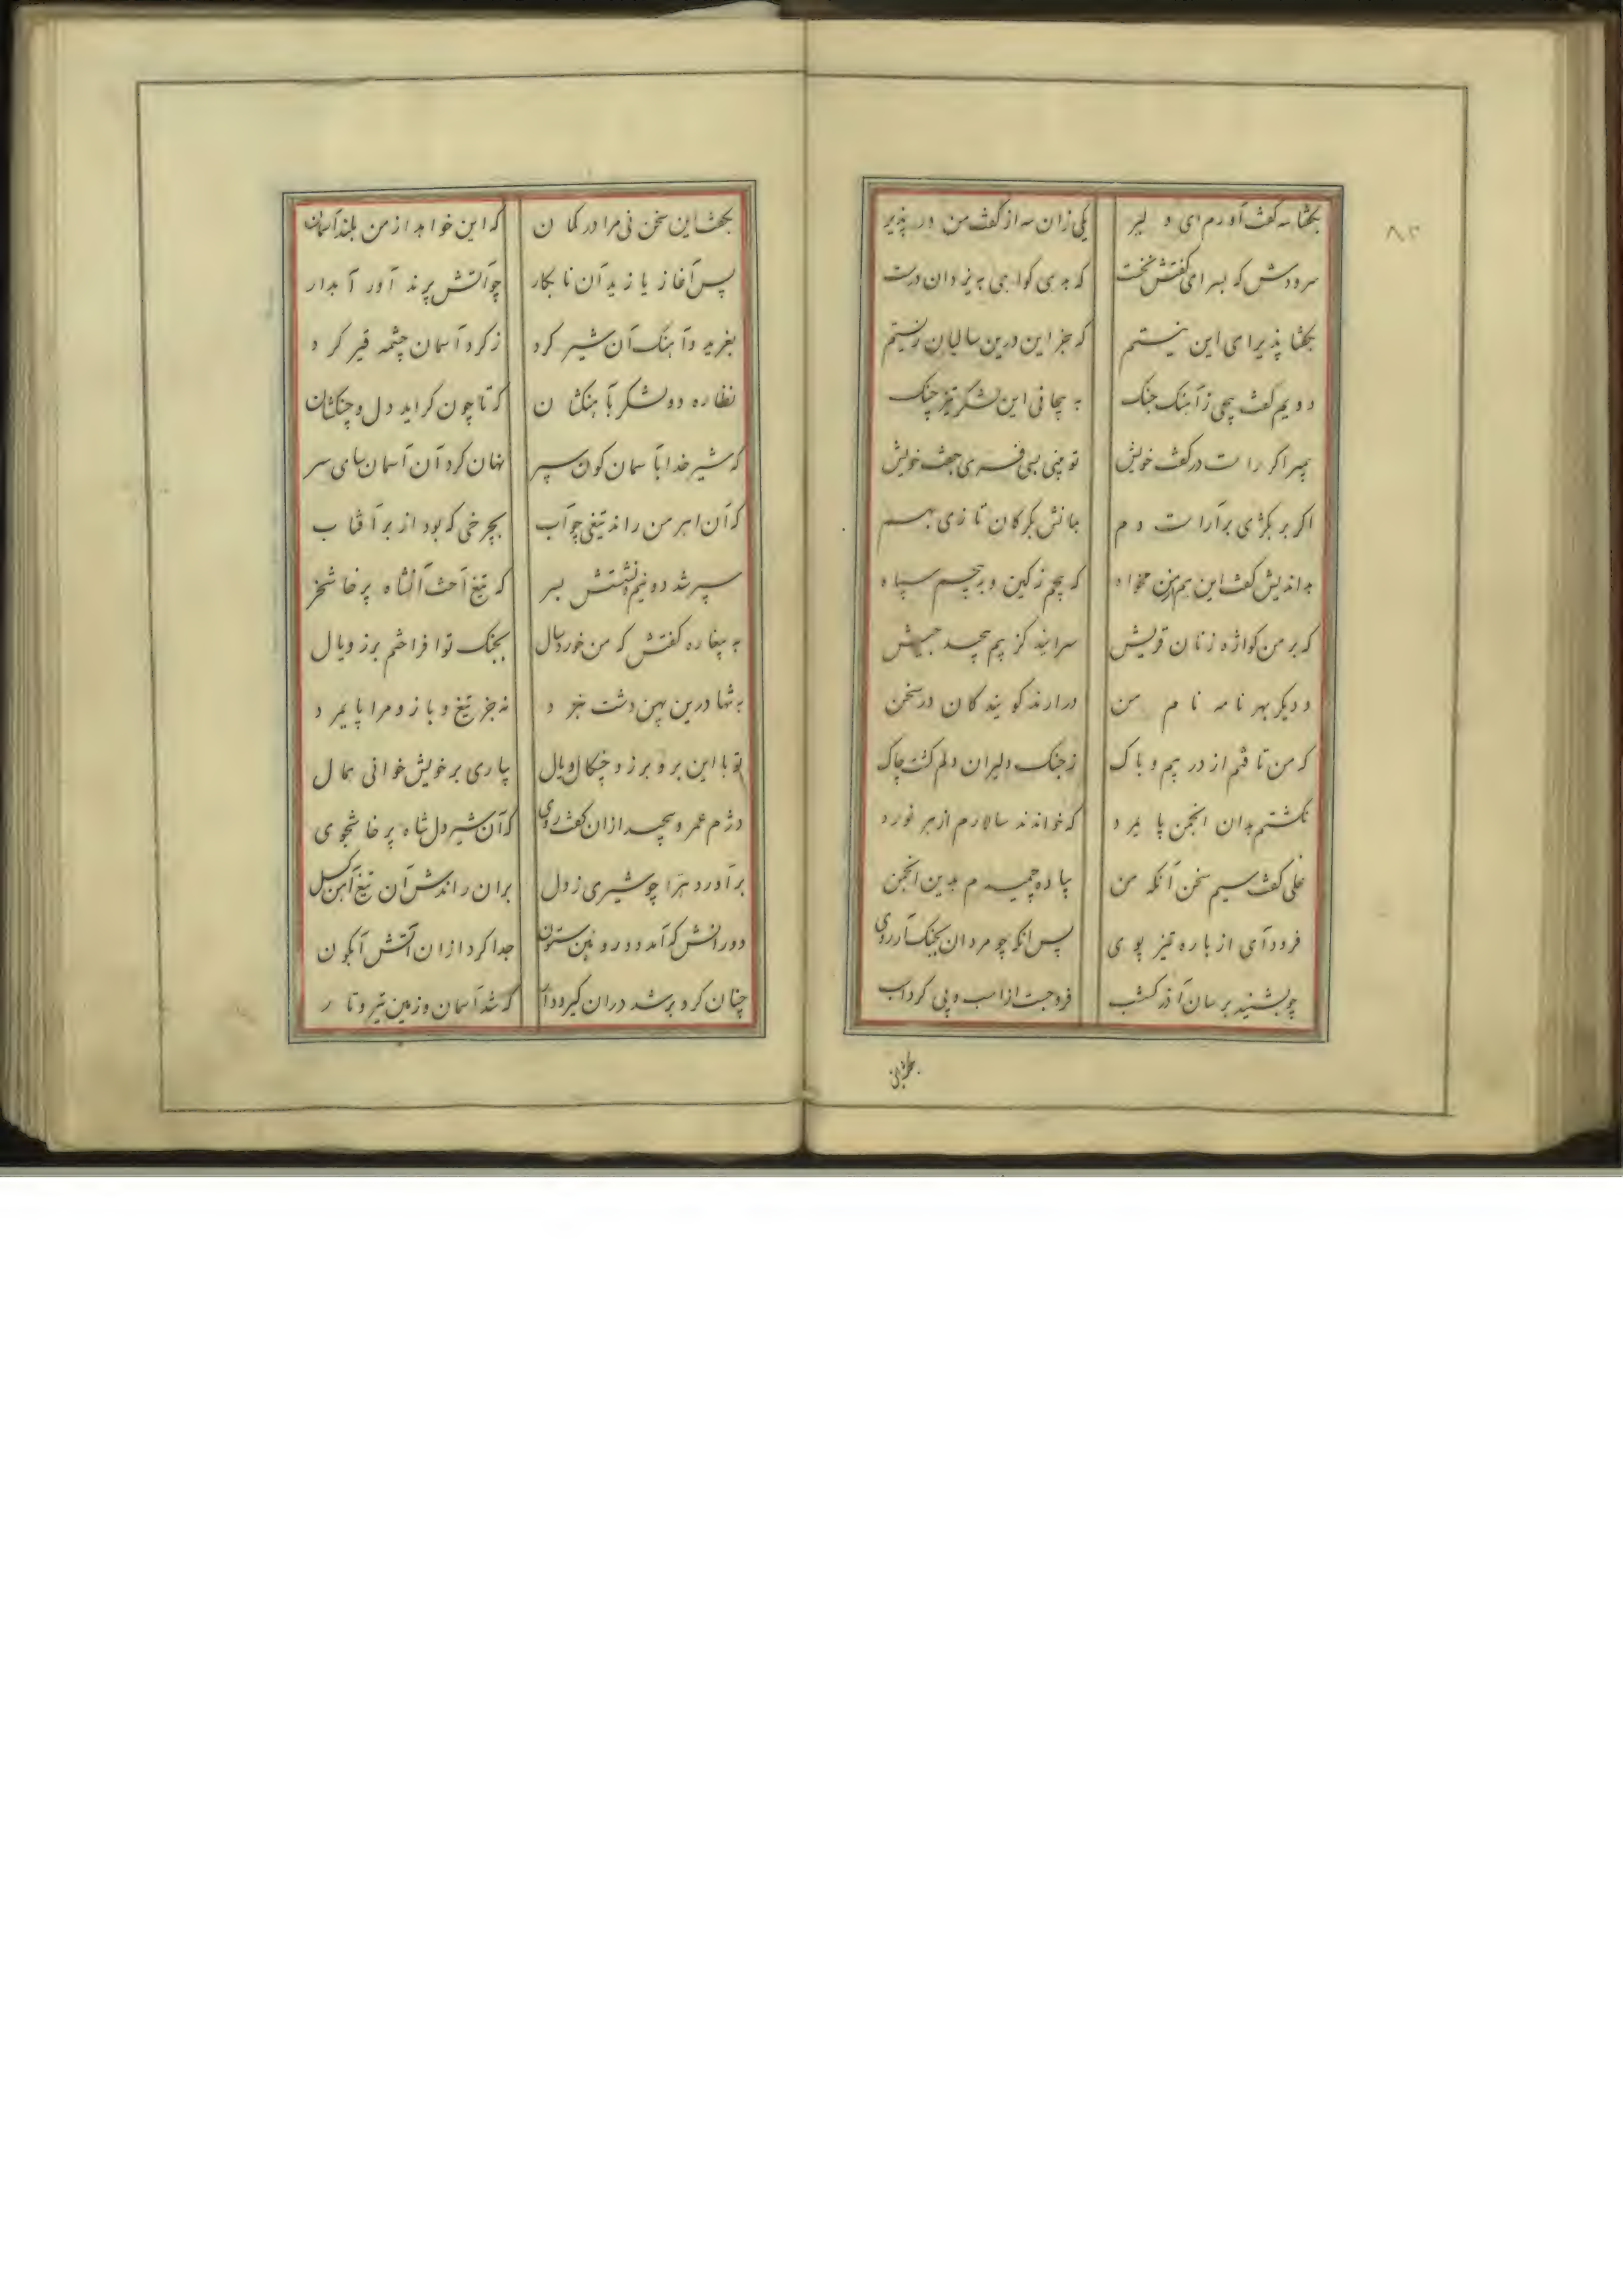 ۸۲
بگفتا سه گفت آوردم ای دلیر یکی زان سه از گفت من در پذیر
سرودش که بسرای گفتش نخست که بدهی گواهی به یزدان درست
بگفتا پذیرای این نیستم که جز این درین سالیان زیستم
دویم گفت پیچی ز آهنگ جنگ به پیچانی این لشکر تیز چنگ
پیمبر اگر راست در گفت خویش تو بینی بسی فری جفت خویش
اگر بر بکژی بر آراست دم بگرگان تازی بهم
بداندیش گفت این هم از من مخواه که پیچم ز کین و به پیچم سپاه
که بر من کواژه زنان قریش سرایند کز بیم پیچید جیش
و دیگر بهر نامه نام من در ارند گویندگان در سخن
که من تافتم از در بیم و باک ز جنگ دلیران دلم گشت چاک
نگشتم بدان انجمن پایمرد که خواندند سالارم از هر نورد
علی گفت سیم سخن آنکه من پیاده چمیدم بدین انجمن
فرود آی از باره تیز پوی پس آنگه چو مردان بجنگ آر روی
چو بشنید بر سان آذر گشسب فرو جست از اسب و پی کرد اسب
بگفت این سخن نی مرا در گمان که این خواهد از من بلند آسمان
پس آغاز یازید آن نابکار چو آتش پرند آور آبدار
بغرید و آهنگ آن شیر کرد ز گرد آسمان چشمه قیر کرد
نظاره دو لشکر بآهنگشان که تا چون گراید دل و چنگشان
که شیر خدا بآسمان گون سپر نهان کرد آن آسمان سای سر
که آن اهرمن راند تیغی چو آب بچرخی که بود از بر آفتاب
سپر شد دو نیم و نشستش بسر که تیغ آخت آنشاه پرخاشخر
به بیغاره گفتش که من خورد سال بجنگ تو افراختم برز و یال
به تنها درین پهن دشت نبرد نه جز تیغ و بازو مرا پایمرد
تو با این بر و برز و چنگال و یال بیاری بر خویش خوانی همال
دژم عمرو پیچید ازان گفت روی که آن شیر دل شاه پرخاشجوی
بر آورد هرا چو شیری ز دل بران راندش آن تیغ آهن گسل
دو رانش که آمد دو رویین ستون جدا کرد ازان آتش آبگون
چنان گرد بر شد دران گیر و دار که شد آسمان و زمین تیره و تار